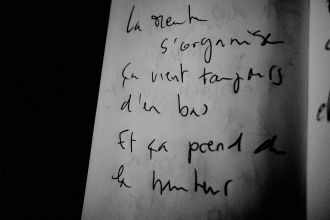 La
s'organise
ça vient toujours
d'en bas
Et ça prend de
la hauteur